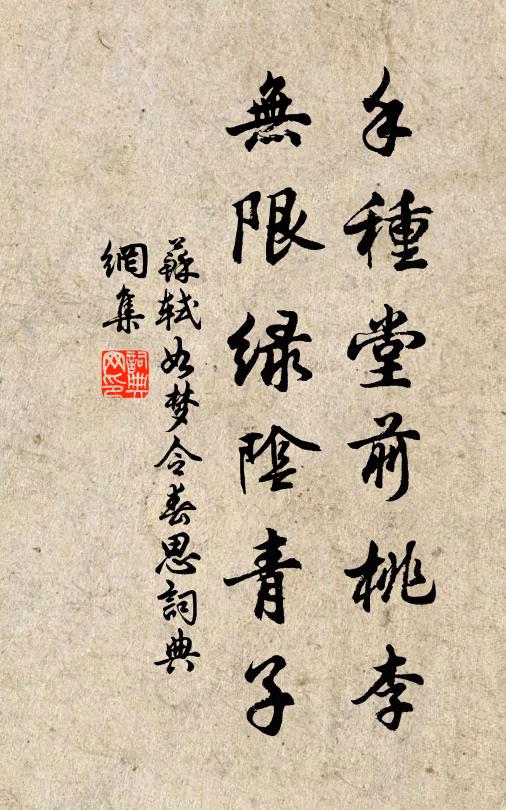 手種堂前桃李
無限緑陰青子
蘇軾如梦令春思詞典
網集
詞典
网印